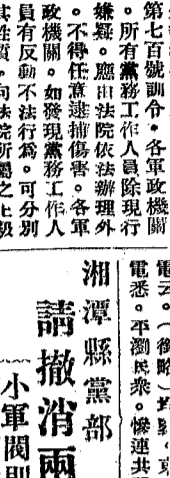 第七百號訓令。各軍政機關
。所有黨務工作人員除現行
嫌疑。應由法院依法辦理外
。不得任意逮捕傷害。各軍
政機關。如發現黨務工作人
員有反動不法行爲。可分別
其性質。向法院所屬之上級
電云。(銜略)
電悉。平瀏民衆。慘連共
湘潭縣黨部
請撤消兩
小軍閥